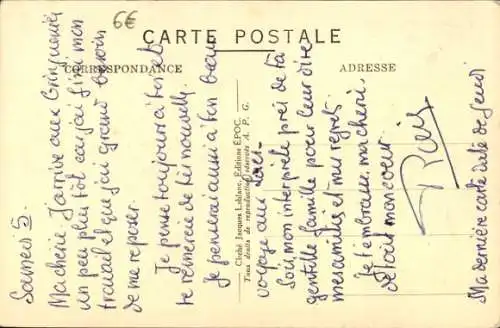 6€
CARTE POSTALE
CORRESPONDANCE
ADRESSE
Cliché Jacques Leblanc, Editions EPOC.
Tous droits de reproduction réservés A. P. G.
Samedi 5.
Ma chérie. J'arrive aux
un peu plus tôt car j'ai fini mon
travail et que j'ai grand besoin
de me reposer.
Je pense toujours à toi et
te remercie de tes nouvelles.
Je penserai aussi à ton beau
voyage aux
Sois mon interprète près de ta
gentille famille pour leur dire
mes amitiés et mes regrets.
Je t'embrasse, ma chérie,
de tout mon coeur.
Ma dernière carte date de Jeudi